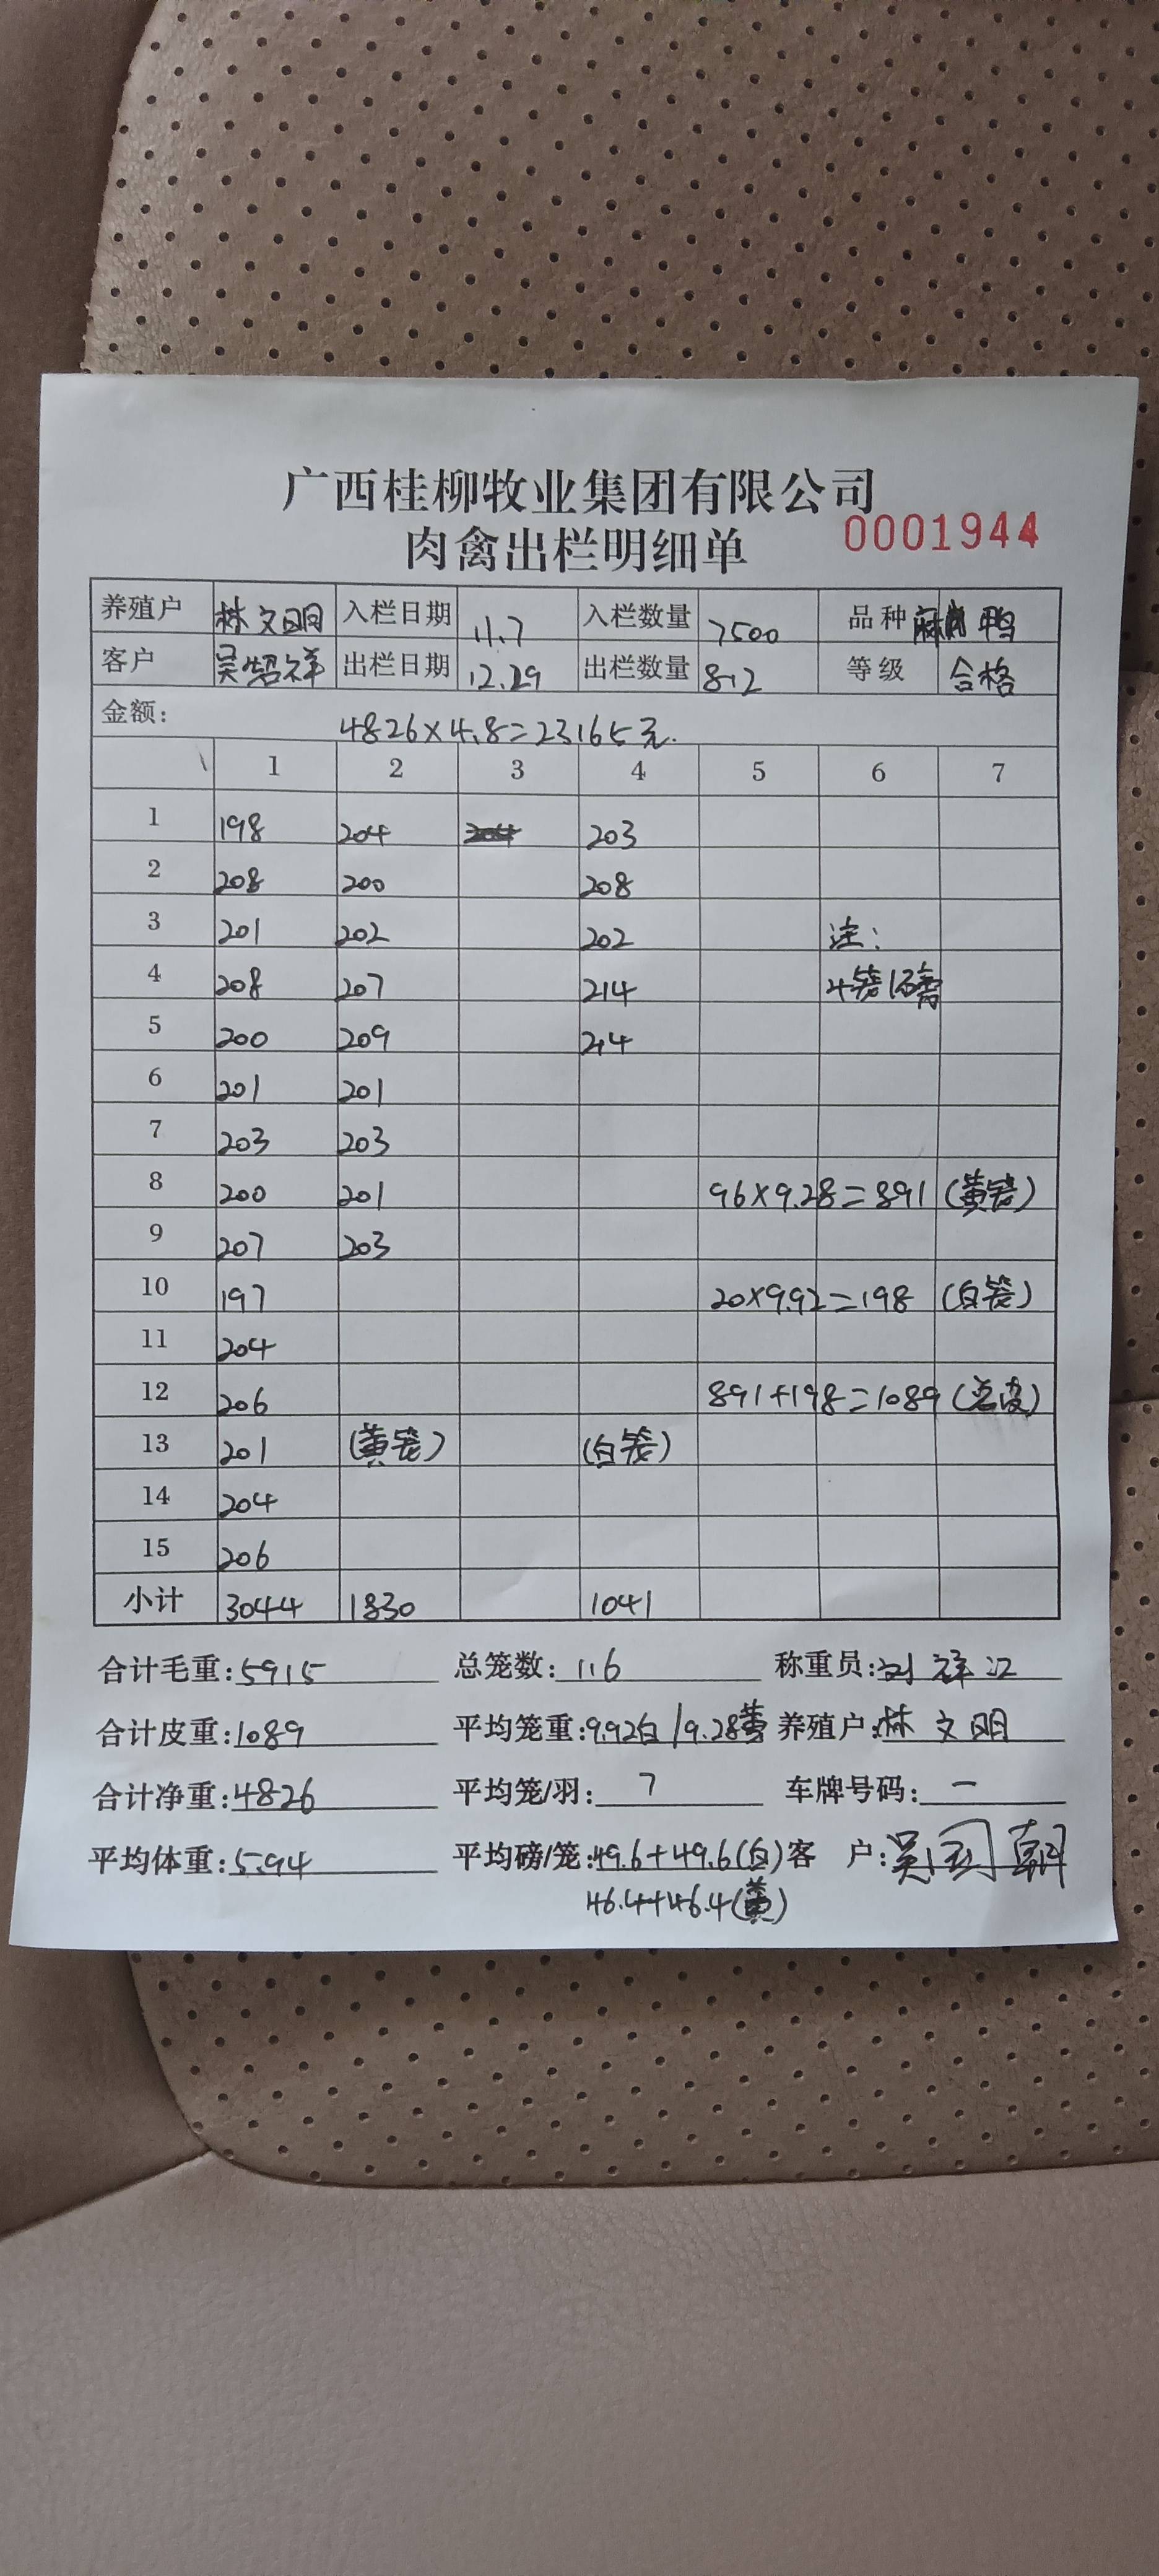 广西桂柳牧业集团有限公司
肉禽出栏明细单 0001944
养殖户 林文明 入栏日期 11.7 入栏数量 7500 品种 麻鸭
客户 吴绍祥 出栏日期 12.29 出栏数量 812 等级 合格
金额: 4826×4.8=23165元.
1 2 3 4 5 6 7
1 198 204 203
2 208 200 208
3 201 202 202 注:
4 208 207 214 4笼1磅
5 200 209 214
6 201 201
7 203 203
8 200 201 96×9.28=891 (黄笼)
9 207 203
10 197 20×9.92=198 (白笼)
11 204
12 206 891+198=1089 (总皮)
13 201 (黄笼) (白笼)
14 204
15 206
小计 3044 1830 1041
合计毛重:5915 总笼数:116 称重员:刘祥江
合计皮重:1089 平均笼重:9.92白/9.28黄 养殖户:林文明
合计净重:4826 平均笼/羽:7 车牌号码:一
平均体重:5.94 平均磅/笼:49.6+49.6(白) 客 户:吴朝
46.4+46.4(黄)